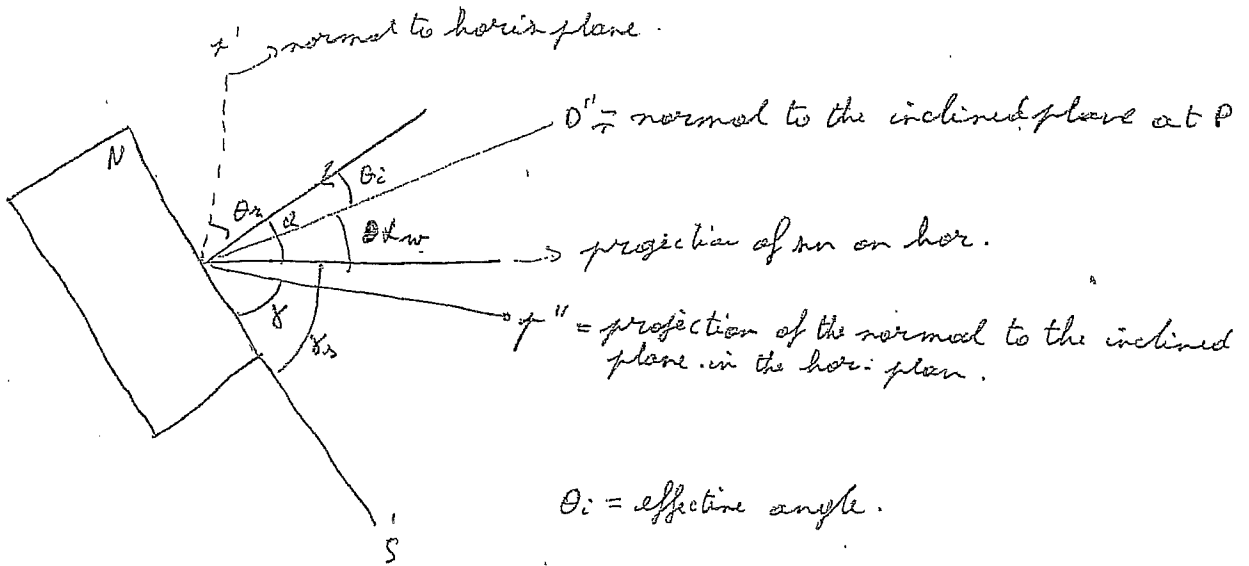 r'
normal to horis plane.
D" = normal to the inclined plane at P
N
θz
α
θi
αw
projection of sun on hor.
γ
γs
r" = projection of the normal to the inclined
plane in the hori plan.
θi = effective angle.
S